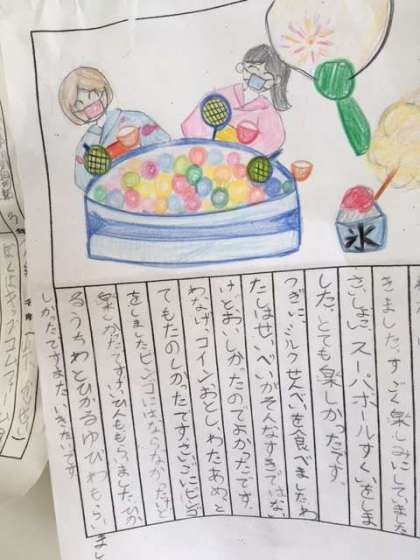 氷
きました。すごく楽しみにしていました
さいしょに スーパボールすくいをしま
した。とても楽しかったです。
つぎに、ミルクせんべいを食べました。わ
たしはせんべいがそんなすきではな
けどおいしかったのでよかったです。
わなげ、コインおとし、わたあめと
てもたのしかったです。さいごにビンゴ
をしました。ビンゴにはならなかった
楽しかったです。けいひんももらいました。ひか
るうちわとひかるゆびわもらいまし
またいきたいです。